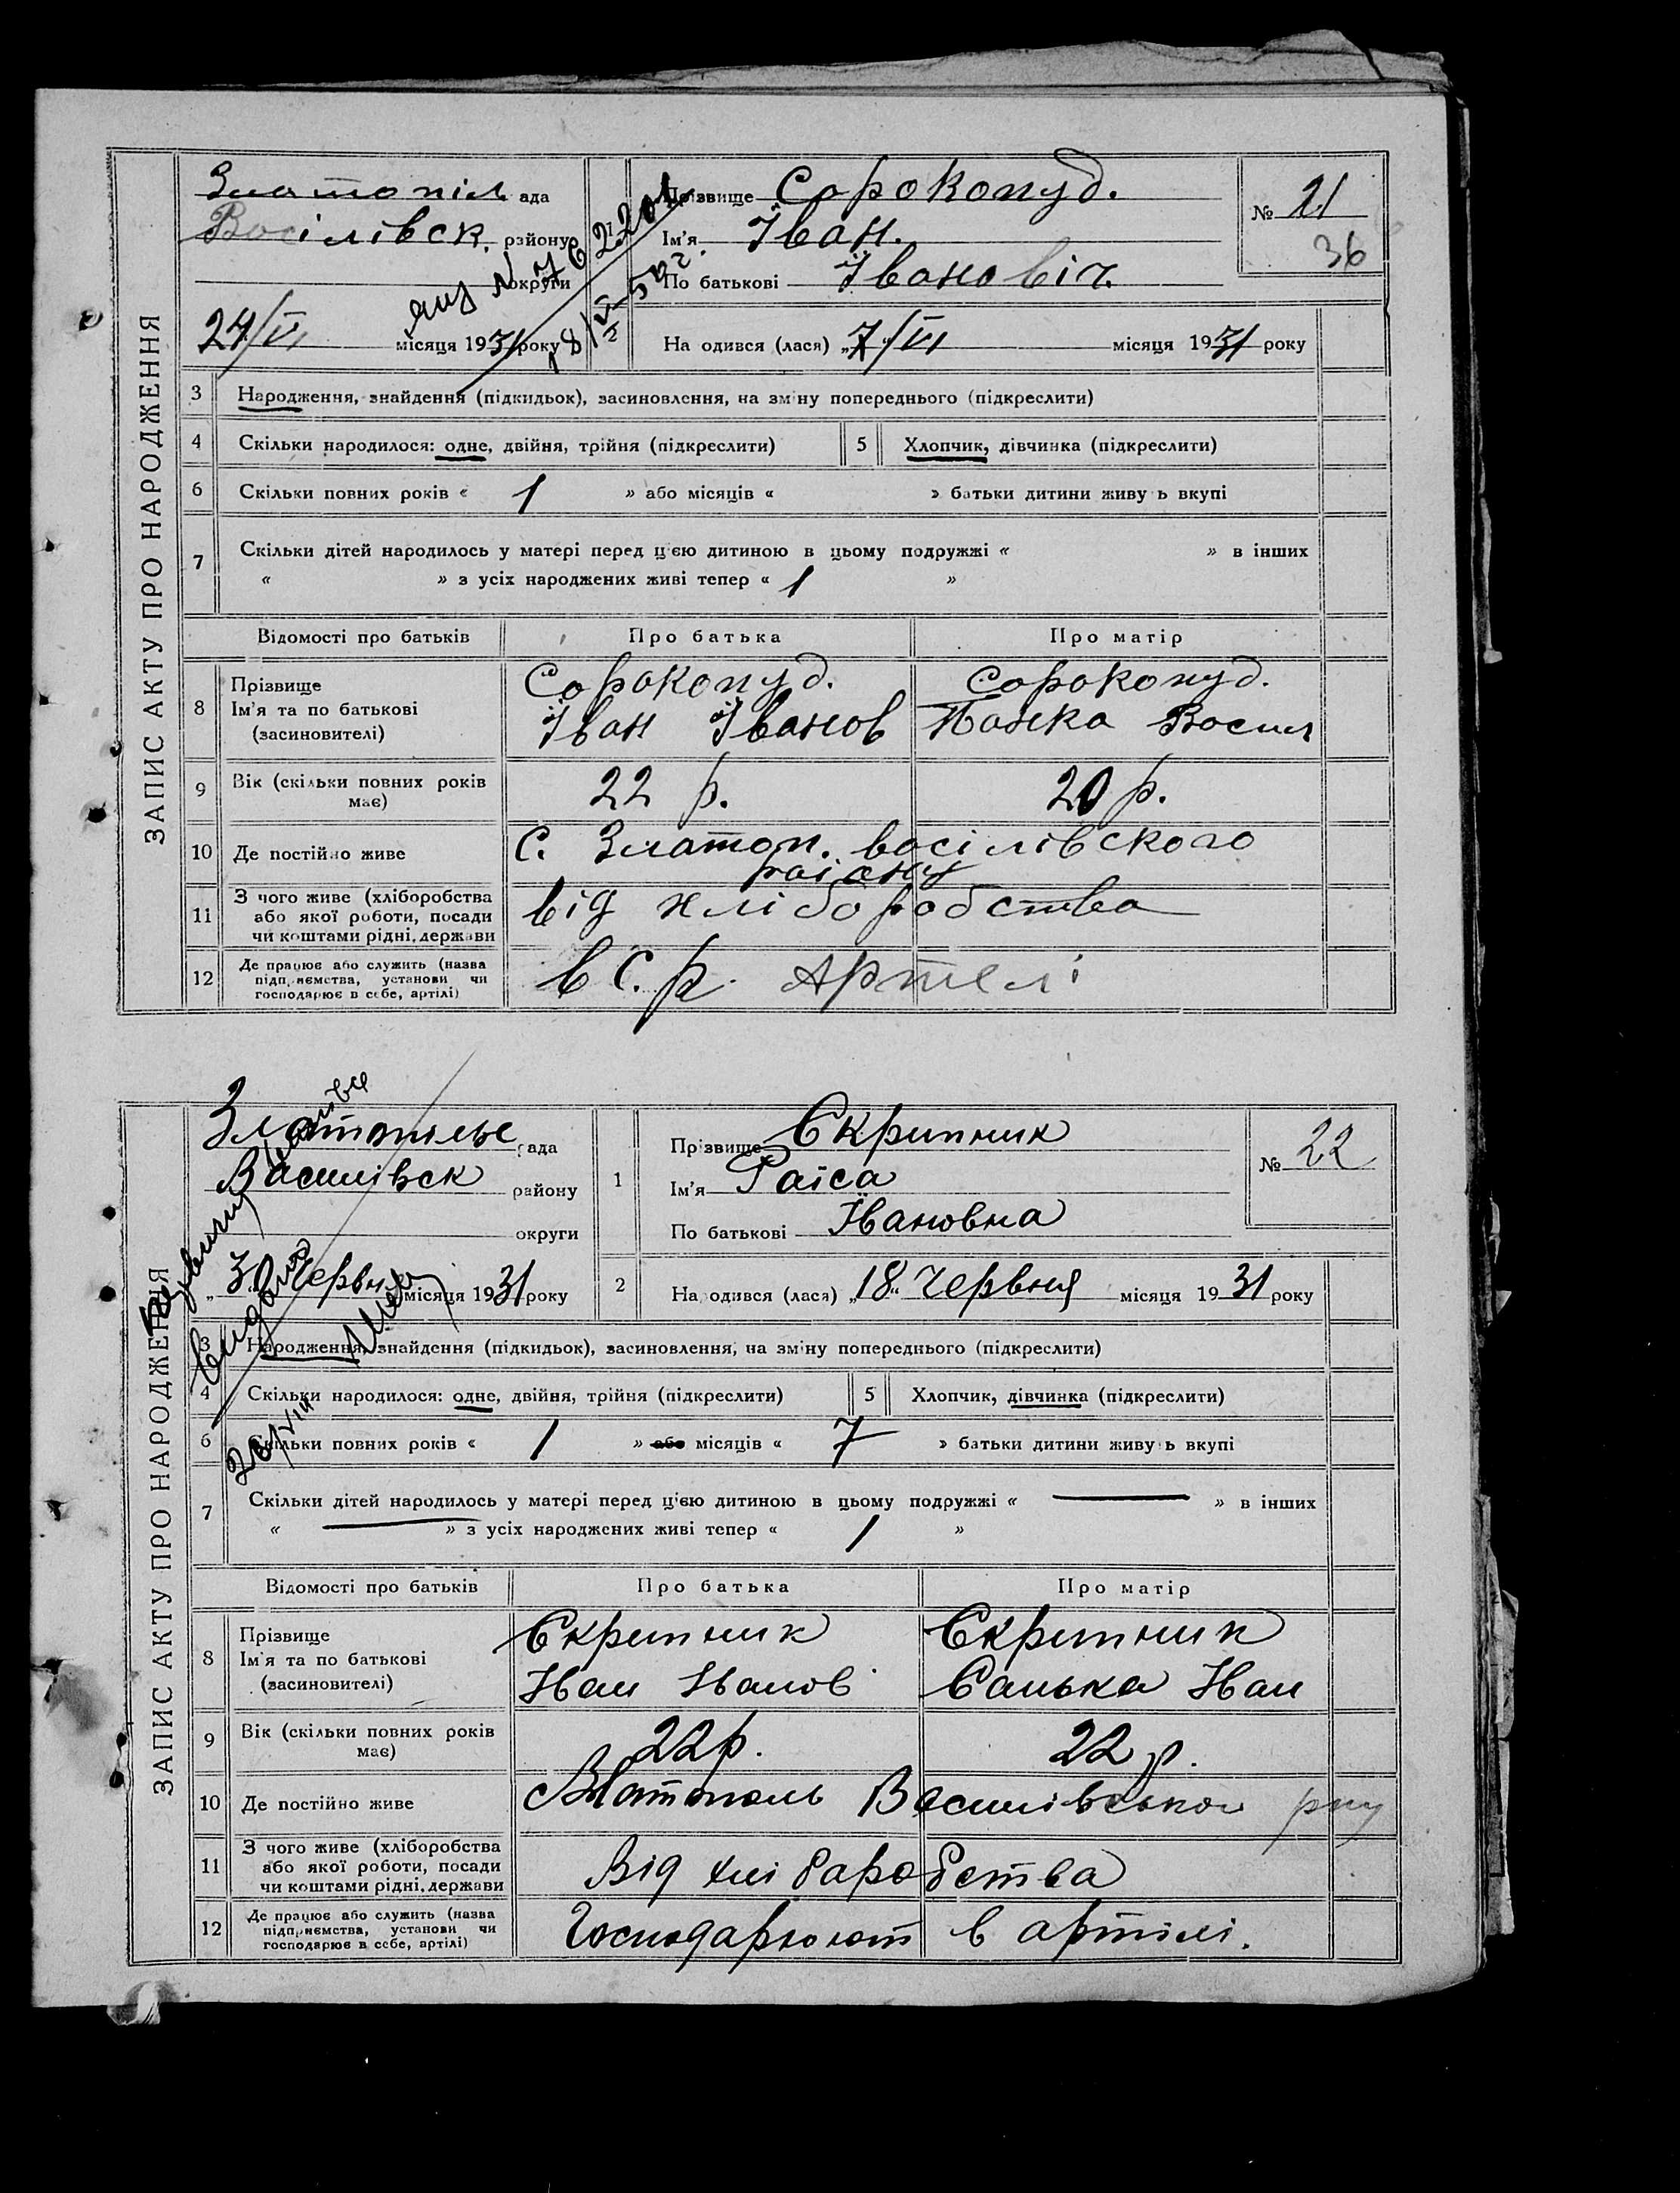 ЗАПИС АКТУ ПРО НАРОДЖЕННЯ
Златопіль ада
Восілівск. району
округи
24/VI місяця 1931 року
Прізвище Сорокопуд.
Ім'я Іван.
По батькові Івановіч.
№ 21
36
На одився (лася) „7/VI місяця 1931 року
3 Народження, знайдення (підкидьок), засиновлення, на зміну попереднього (підкреслити)
4 Скільки народилося: одне, двійня, трійня (підкреслити) 5 Хлопчик, дівчинка (підкреслити)
6 Скільки повних років « 1 » або місяців « » батьки дитини живу ь вкупі
7 Скільки дітей народилось у матері перед цією дитиною в цьому подружжі « » в інших
« » з усіх народжених живі тепер « 1 »
Відомості про батьків Про батька Про матір
8 Прізвище Ім'я та по батькові (засиновителі)
Сорокопуд. Іван Іванов
Сорокопуд. Панка Васил
9 Вік (скільки повних років має) 22 р. 20 р.
10 Де постійно живе С. Златоп. Восілівского
раіону
11 З чого живе (хліборобства або якої роботи, посади чи коштами рідні, держави
від хліборобства
12 Де працює або служить (назва підприємства, установи чи господарює в себе, артілі)
в С. р. Артелі
ЗАПИС АКТУ ПРО НАРОДЖЕННЯ
Златопілье рада
Василівск району
округи
„30 Червня місяця 1931 року
1 Прізвище Скрипник
Ім'я Раїса
По батькові Івановна
№ 22
2 На одився (лася) „18„ Червня місяця 1931 року
3 Народження, знайдення (підкидьок), засиновлення, на зміну попереднього (підкреслити)
4 Скільки народилося: одне, двійня, трійня (підкреслити) 5 Хлопчик, дівчинка (підкреслити)
6 Скільки повних років « 1 » або місяців « 7 » батьки дитини живу ь вкупі
7 Скільки дітей народилось у матері перед цією дитиною в цьому подружжі « — » в інших
« — » з усіх народжених живі тепер « 1 »
Відомості про батьків Про батька Про матір
8 Прізвище Ім'я та по батькові (засиновителі)
Скрипник Иван Иванов
Скрипник Санька Иван
9 Вік (скільки повних років має) 22 р. 22 р.
10 Де постійно живе с Златополь Василівськои рну
11 З чого живе (хліборобства або якої роботи, посади чи коштами рідні, держави
Від хлібаробства
12 Де працює або служить (назва підприємства, установи чи господарює в себе, артілі)
Господарюют в артілі.